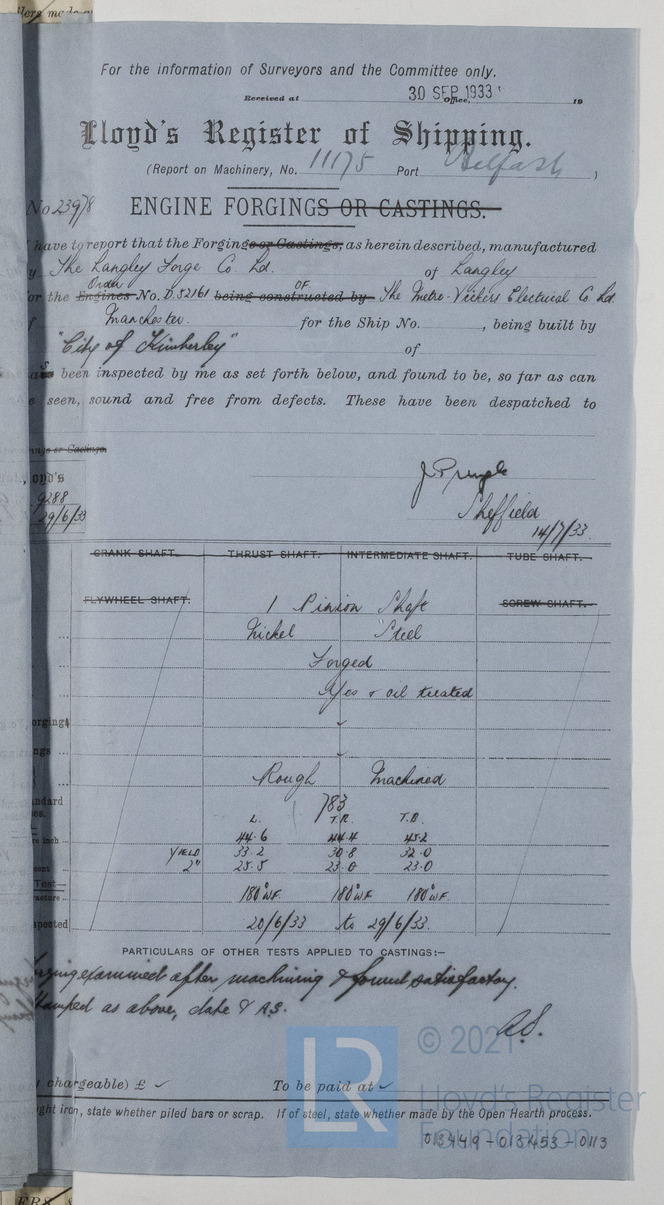 For the information of Surveyors and the Committee only.
Received at 30 SEP 1933 Office, 19
Lloyd's Register of Shipping.
(Report on Machinery, No. 11175 Port Belfast )
No 23978
ENGINE FORGINGS OR CASTINGS.
I have to report that the Forgings or Castings, as herein described, manufactured
by The Langley Forge Co. Ld. of Langley
Order OF
for the Engines No. D.52161 being constructed by The Metro-Vickers Electrical Co Ld
of Manchester. for the Ship No. , being built by
"City of Kimberley" of
been inspected by me as set forth below, and found to be, so far as can
be seen, sound and free from defects. These have been despatched to
or Castings.
Lloyd's
9288
29/6/33
Sheffield
14/7/33.
CRANK SHAFT. THRUST SHAFT. INTERMEDIATE SHAFT. TUBE SHAFT.
FLYWHEEL SHAFT. 1 Pinion Shaft SCREW SHAFT.
Nickel Steel
Forged
Yes & oil treated
Rough Machined
783
L. T.R. T.B.
44.6 44.4 45.2
YIELD 33.2 30.8 32.0
2" 25.5 23.0 23.0
180° W.F. 180° W.F. 180° W.F.
20/6/33 to 29/6/33.
PARTICULARS OF OTHER TESTS APPLIED TO CASTINGS:—
examined after machining & found satisfactory.
Stamped as above, date & A.S.
A.S.
chargeable) £ To be paid at
iron, state whether piled bars or scrap. If of steel, state whether made by the Open Hearth process.
013449-013453-0113
LR
© 2021
Lloyd's Register
Foundation